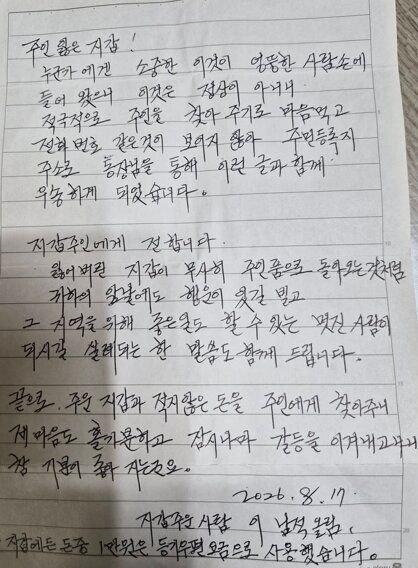 주인 잃은 지갑!
누군가에겐 소중한 이것이 엉뚱한 사람손에
들어 왔으니 이것은 정상이 아니니
적극적으로 주인을 찾아 주기로 마음먹고
전화 번호 같은것이 보이지 않아 주민등록지
주소로 통장님을 통해 이런 글과 함께
우송하게 되었습니다.
지갑주인에게 전합니다.
잃어버린 지갑이 무사히 주인품으로 돌아오는것처럼
귀하의 앞날에도 행운이 있길 빌고
그 지역을 위해 좋은일도 할 수 있는 멋진 사람이
되시길 한 말씀도 함께 드립니다.
끝으로, 주운 지갑과 적지않은 돈을 주인에게 찾아주니
제 마음도 홀가분하고 잠시나마 갈등을 이겨내고나니
참 기분이 좋아 지는군요.
2026. 8. 17
지갑주운 사람 이 남석 올림.
지갑에든 돈중 1만원은 등기우편 요금으로 사용했습니다.